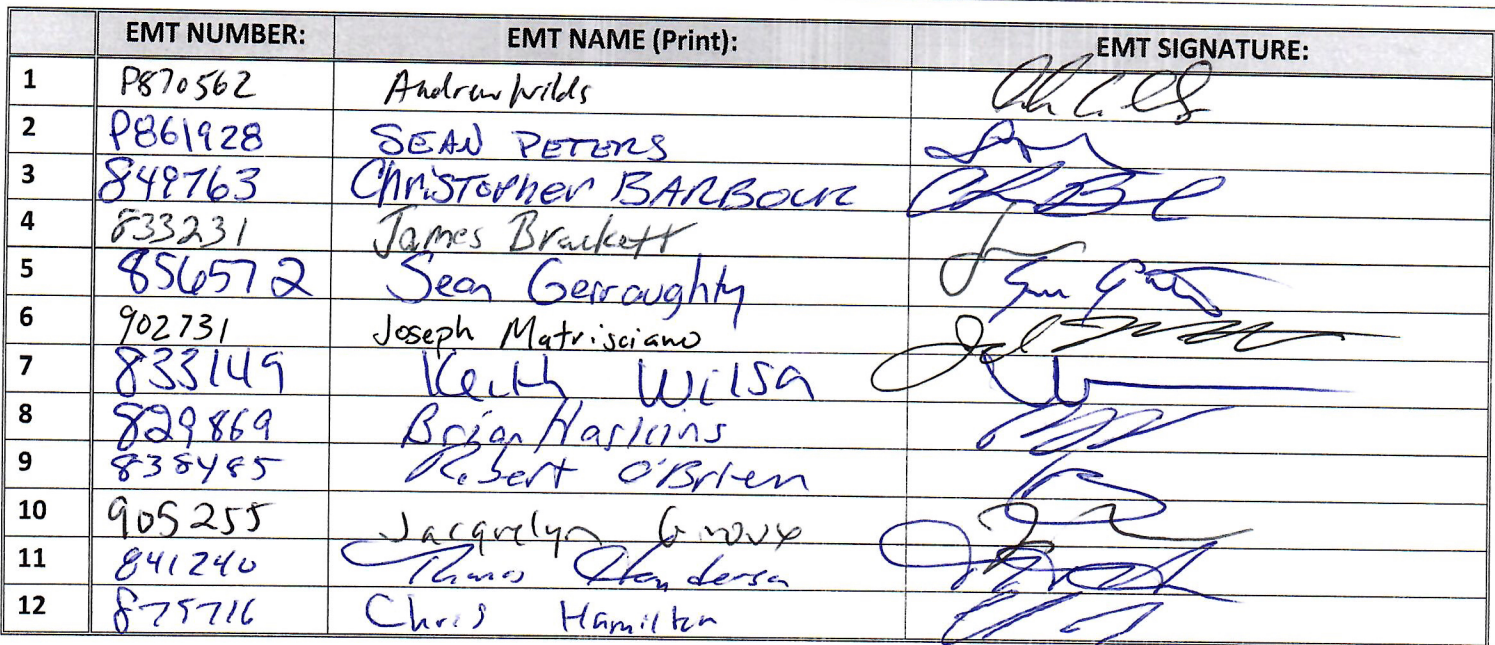 EMT NUMBER: EMT NAME (Print): EMT SIGNATURE:
1 P870562 Andrew Wilds
2 P861928 SEAN PETERS
3 849763 Christopher BARBOUR
4 833231 James Brackett
5 856572 Sean Gerraughty
6 902731 Joseph Matrisciano
7 833149 Keith Wilson
8 829869 Brian Haskins
9 838485 Robert O'Brien
10 905255 Jacquelyn Giroux
11 841240 Thomas Henderson
12 875716 Chris Hamilton